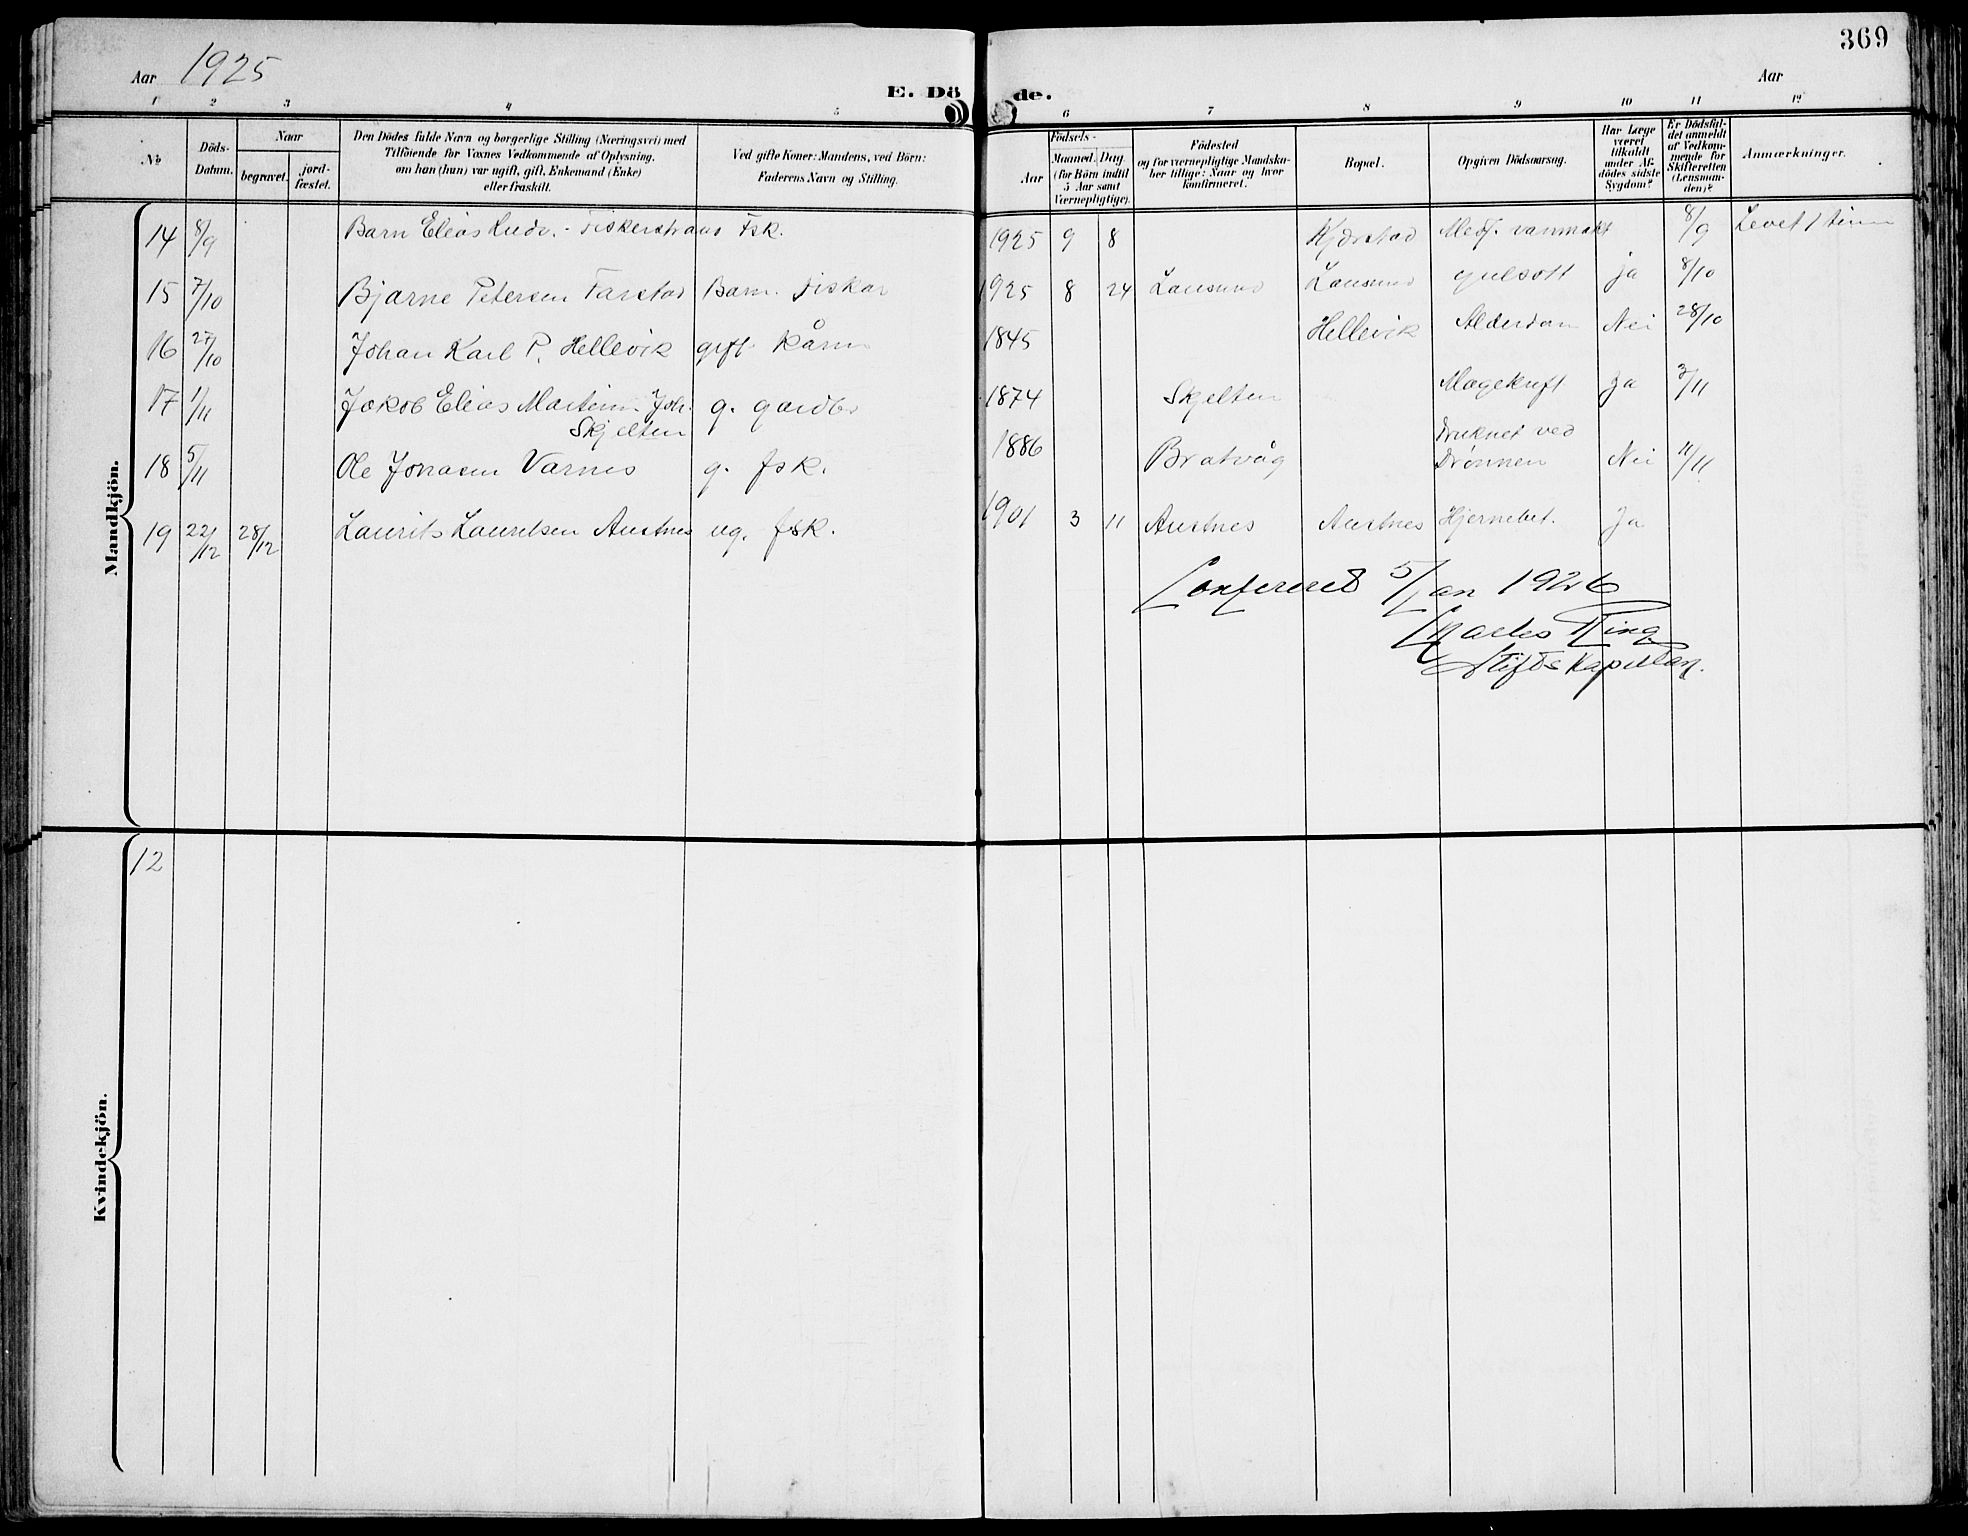 369
Aar 1925
E. Döde.
Aar
1 2 3 4 5 6 7 8 9 10 11 12
No
Döds-Datum.
Naar
begravet.
jord-fæstet.
Den Dödes fulde Navn og borgerlige Stilling (Næringsvei) med
Tilföiende for Voxnes Vedkommende af Oplysning,
om han (hun) var ugift, gift, Enkemand (Enke)
eller fraskilt.
Ved gifte Koner: Mandens, ved Börn:
Faderens Navn og Stilling.
Födsels-
Aar
Maaned. Dag
(for Börn indtil
5 Aar samt
Værnepligtige).
Födested
og for værnepligtige Mandska-
ber tillige: Naar og hvor
konfirmeret.
Bopæl.
Opgiven Dödsaarsag.
Har Læge
været
tilkaldt
under Af-
dödes sidste
Sygdom?
Er Dödsfal-
det anmeldt
af Vedkom-
mende for
Skifteretten
(Lensman-
den)?
Anmærkninger.
Mandkjön.
14 8/9 Barn Elias Ludv. - Fiskerstrand Fsk. 1925 9 8 Kjærstad Medf. vanmakt 8/9 Levet 1 time
15 7/10 Bjarne Petersen Farstad Barn. Fiskar 1925 8 24 gulsott ja 8/10
16 27/10 Johan Karl P. Hellevik gift kårm 1845 Hellevik Alderdom Nei 28/10
17 1/11 Jakob Elias Martin Joh. g. gardbr 1874 Skjelten Magekreft Ja 3/11
Skjelten
18 5/11 Ole Jonasen Varnes g. fsk. 1886 Bratvåg Druknet ved Nei 11/11
Drønnen
19 22/12 28/12 Laurits Lauritsen Austnes ug. fsk. 1901 3 11 Austnes Austnes Hjernebet. Ja
Confereret 5/Jan 1926
Charles Ring
Stiftskapellan.
Kvindekjön.
12